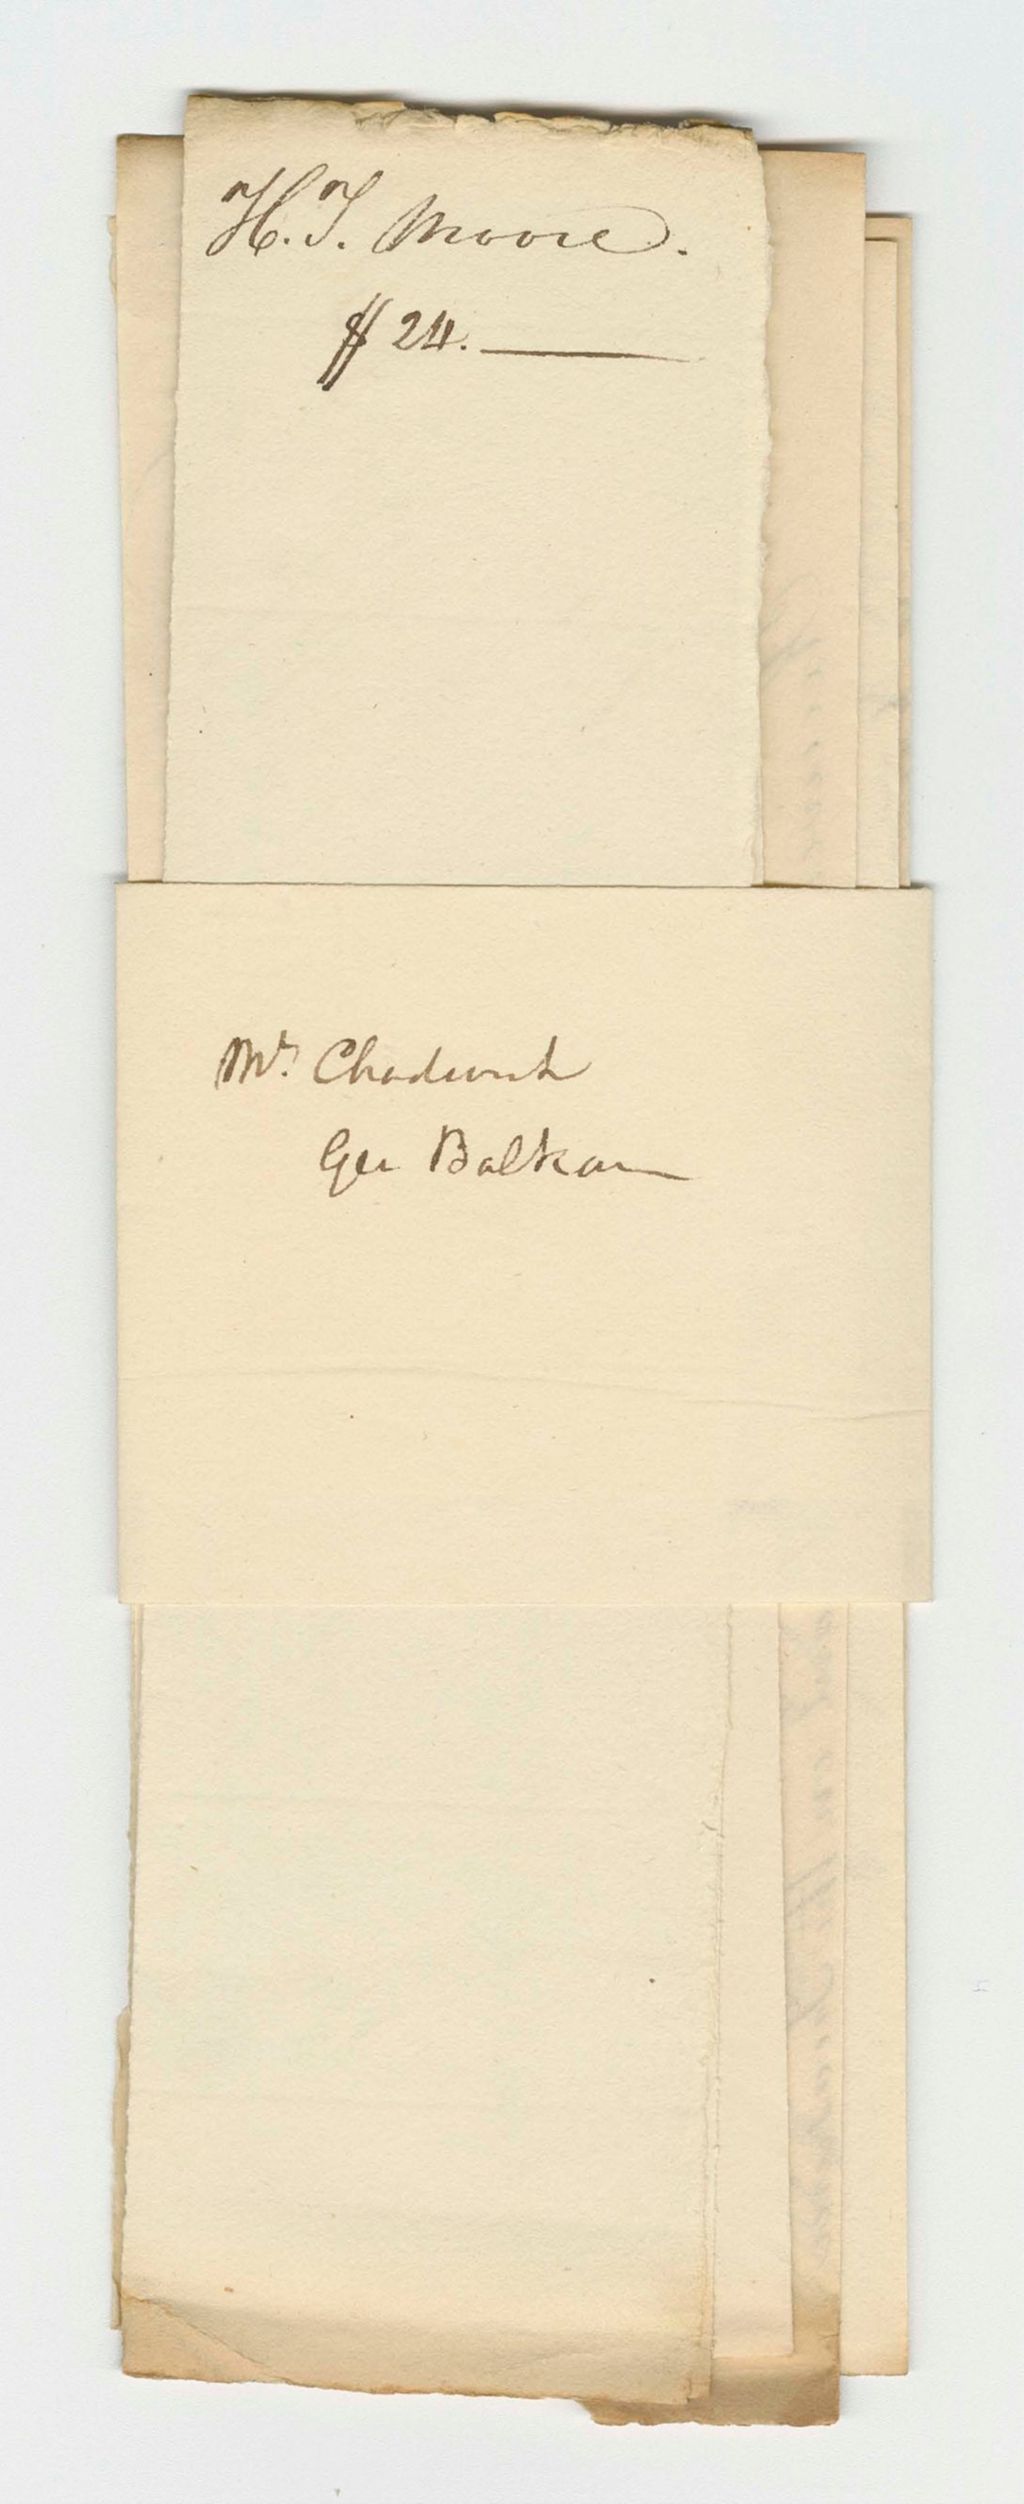 H. T. Moore.
$ 24. ———
Mr. Chadwick
Geo Balkam